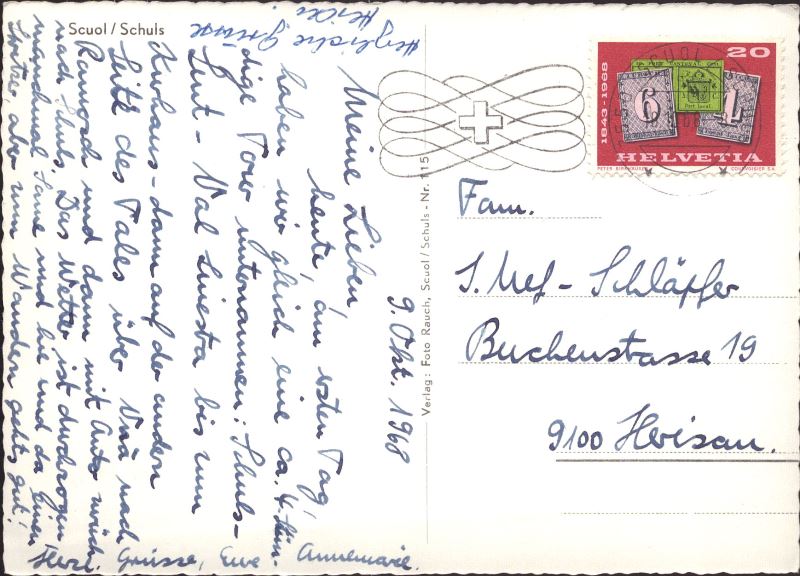 Scuol / Schuls
9. Okt. 1968
Meine Lieben!
heute, am ersten Tag,
haben wir gleich eine ca. 4-stün-
dige Tour unternommen: Schuls-
Sent - Val Sinestra bis zum
Kurhaus - dann auf der andern
Seite des Tales über Vnà nach
Ramosch und dann mit Auto zurück
nach Schuls. Das Wetter ist durchzogen
manchmal Sonne und hie und da einen
Spritzer aber zum Wandern geht's gut!
Herzl. Grüsse, Eure Annemarie.
Herzliche Grüsse
Verlag: Foto Rauch, Scuol / Schuls - Nr. 115
1843-1968
20
6
4
Port local
HELVETIA
PETER BIRKHÄUSER
COURVOISIER S.A.
SCUOL
Fam.
J. Nef-Schläpfer
Buchenstrasse 19
9100 Herisau.